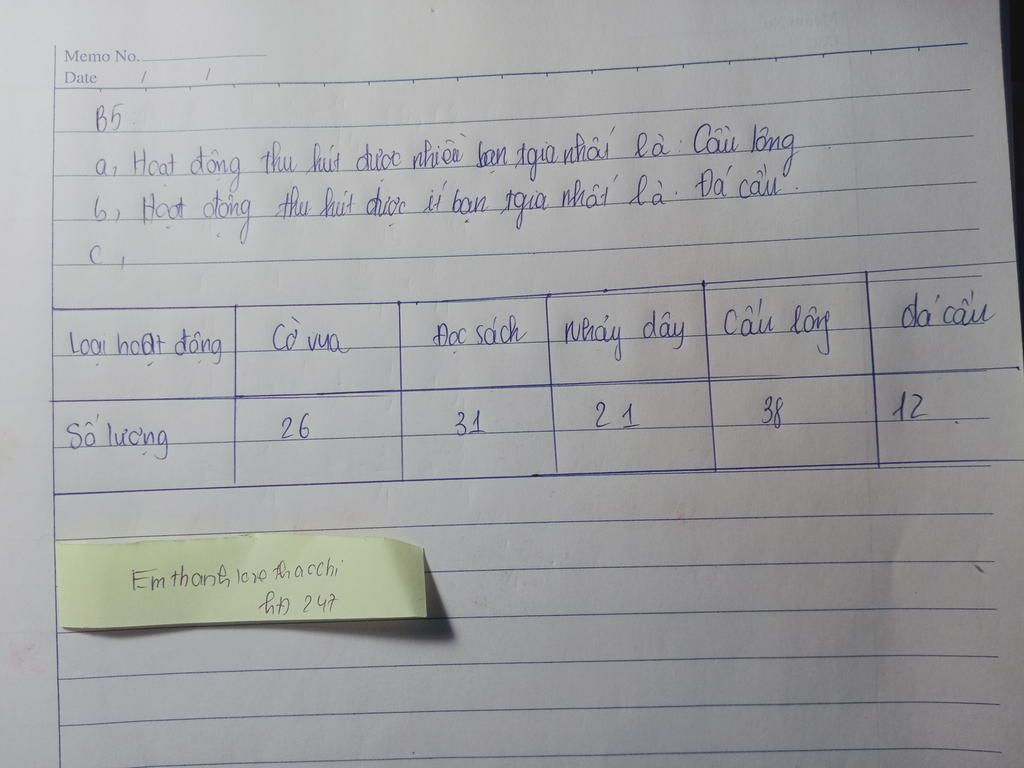 Memo No.
Date / /
B5.
a, Hoạt động thu hút được nhiều bạn tgia nhất là: Cầu lông
b, Hoạt động thu hút được ít bạn tgia nhất là. Đá cầu.
C,
Loại hoạt động Cờ vua Đọc sách Nhảy dây Cầu lông đá cầu
Số lượng 26 31 21 38 12
Em thanh love thacchi
hđ 247